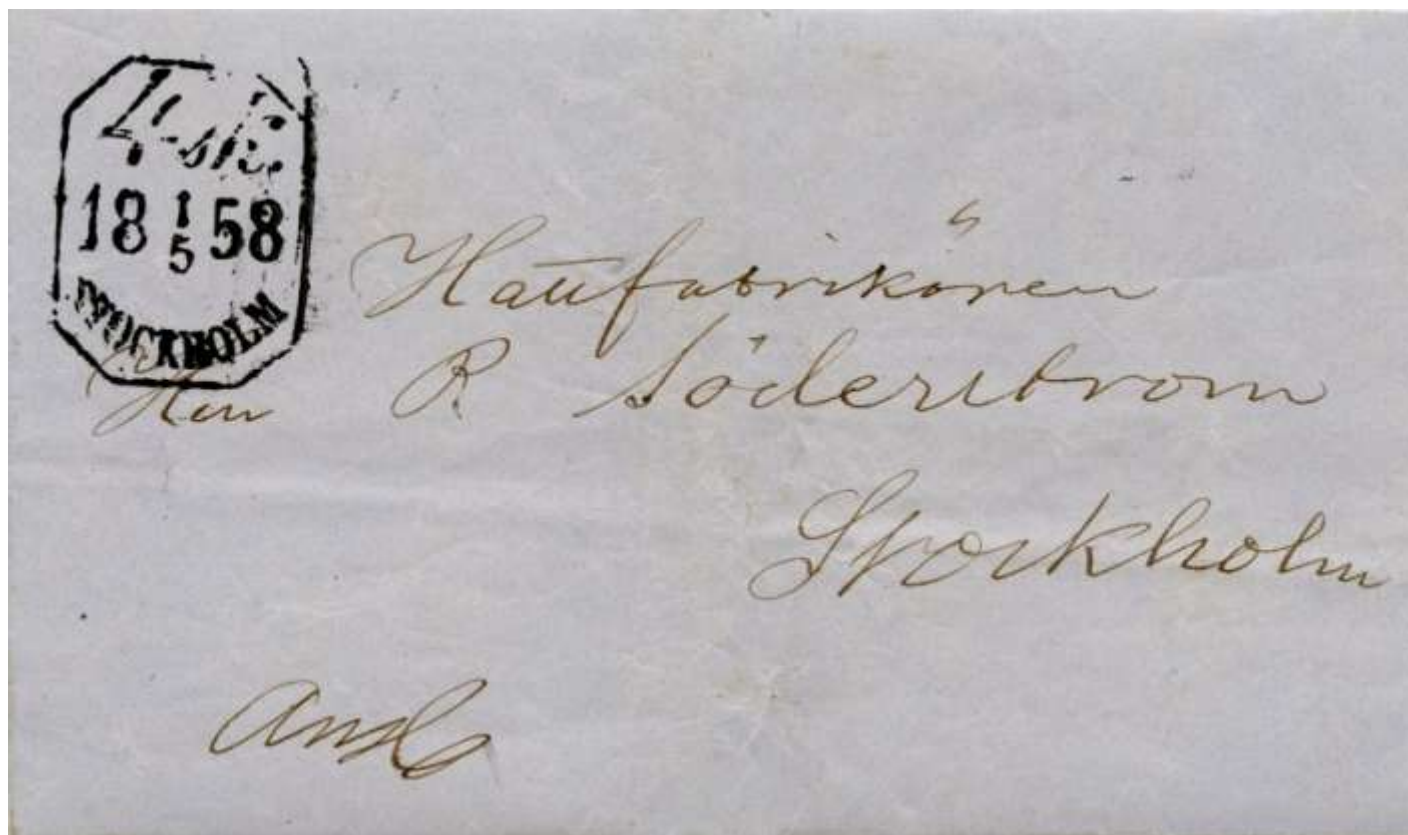 4 sk.
18 1/5 58
STOCKHOLM
Hattfabrikören
Herr R Söderström
Stockholm